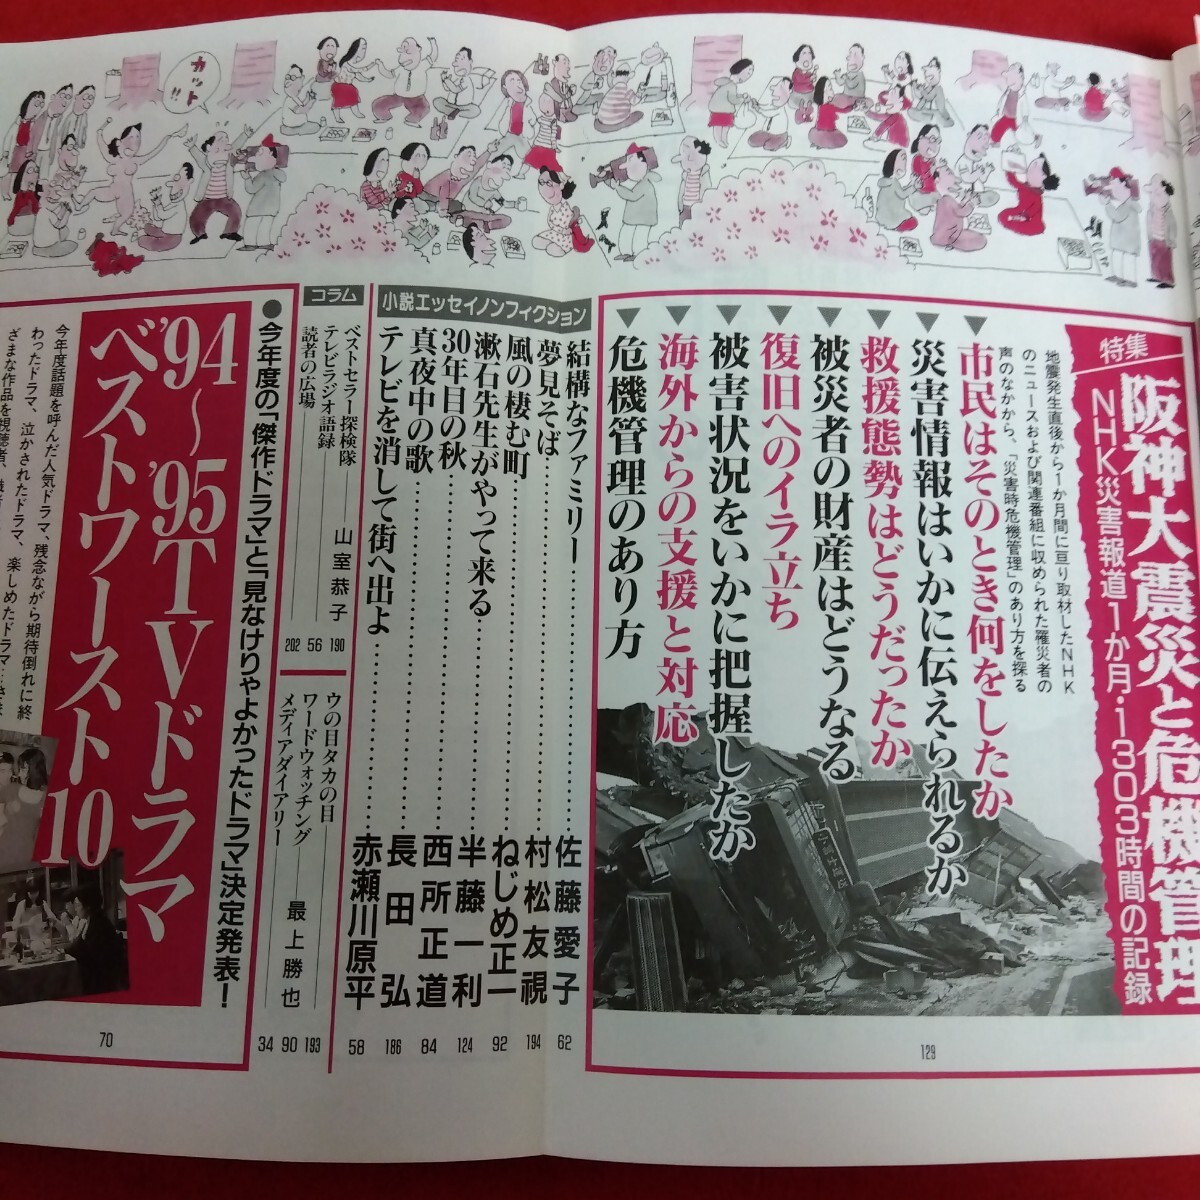 カット!!
特集
阪神大震災と危機管理
NHK災害報道1か月・1303時間の記録
地震発生直後から1か月間に亘り取材したNHK
のニュースおよび関連番組に収められた罹災者の
声のなかから、「災害時危機管理」のあり方を探る
▼市民はそのとき何をしたか
▼災害情報はいかに伝えられるか
▼救援態勢はどうだったか
▼被災者の財産はどうなる
▼復旧へのイラ立ち
▼被害状況をいかに把握したか
▼海外からの支援と対応
▼危機管理のあり方
129
小説エッセイノンフィクション
結構なファミリー 佐藤愛子 62
夢見そば 村松友視 194
風の棲む町 ねじめ正一 92
漱石先生がやって来る 半藤一利 124
30年目の秋 西所正道 84
真夜中の歌 長田弘 186
テレビを消して街へ出よ 赤瀬川原平 58
コラム
ベストセラー探検隊 山室恭子 190
テレビラジオ語録 56
読者の広場 202
ウの目タカの目 193
ワードウォッチング 最上勝也 90
メディアダイアリー 34
●今年度の「傑作ドラマ」と「見なけりゃよかったドラマ」決定発表!
'94〜'95TVドラマ
ベストワースト10
今年度話題を呼んだ人気ドラマ、残念ながら期待倒れに終
わったドラマ、泣かされたドラマ、楽しめたドラマ…さま
ざまな作品を視聴者、
70